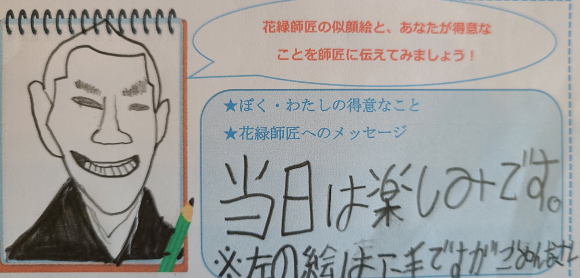 花緑師匠の似顔絵と、あなたが得意な
ことを師匠に伝えてみましょう！
★ぼく・わたしの得意なこと
★花緑師匠へのメッセージ
当日は楽しみです。
※左の絵は下手ですがごめんなさい